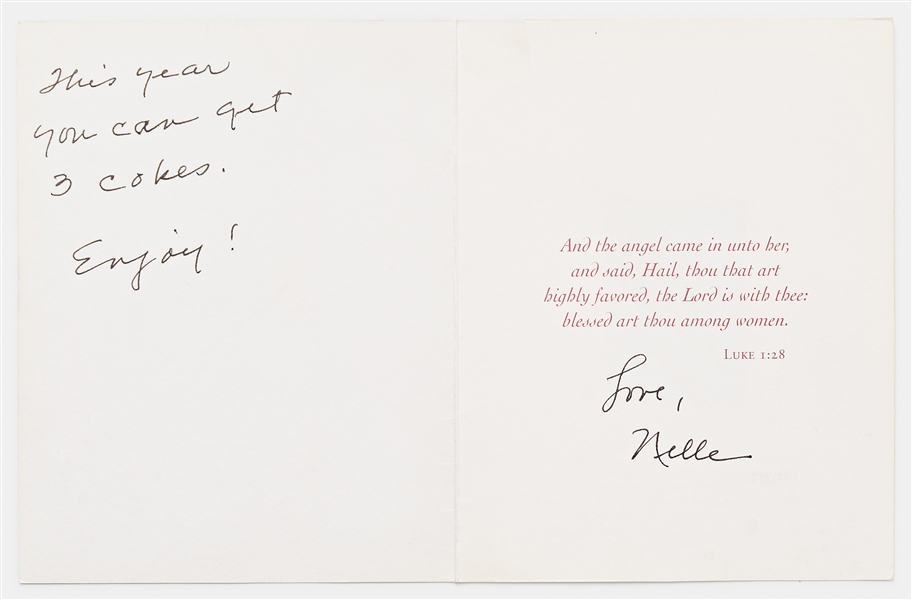 This year
you can get
3 cokes.
Enjoy!
And the angel came in unto her,
and said, Hail, thou that art
highly favored, the Lord is with thee:
blessed art thou among women.
Luke 1:28
Love,
Nelle